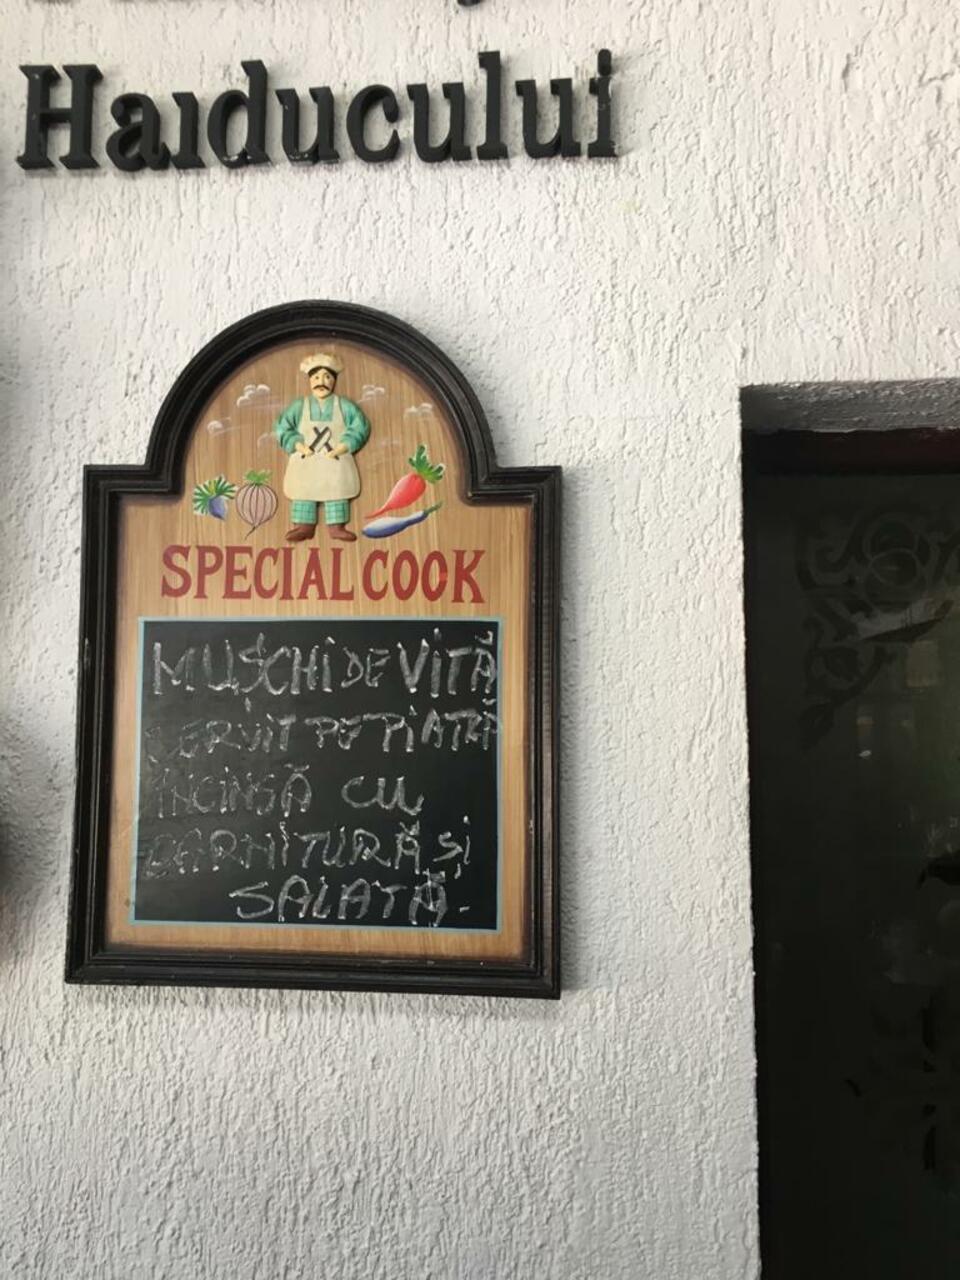 Haiducului
SPECIAL COOK
MUȘCHI DE VITĂ
SERVIT PE PIATRĂ
ÎNCINSĂ CU
GARNITURĂ ȘI
SALATĂ.